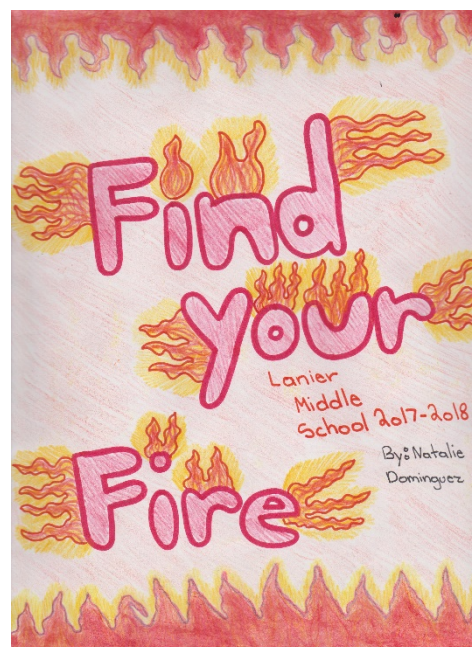 Find
your
Fire
Lanier
Middle
School 2017-2018
By: Natalie
Dominguez